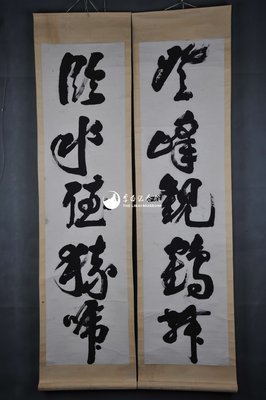 登峰觀鶴舞
臨水聽猿啼
THE LIBAI MUSEUM